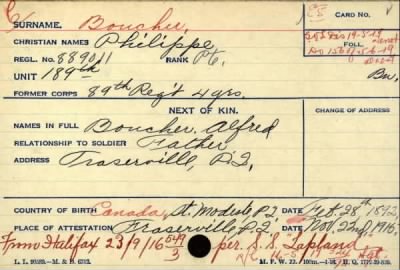 SURNAME. Boucher,
CARD No.
CHRISTIAN NAMES Philippe
REGL. No. 889011 RANK Pte.
FOLL.
UNIT 189th
FORMER CORPS 89th Reg't 4 yrs.
NEXT OF KIN.
CHANGE OF ADDRESS
NAMES IN FULL Boucher, Alfred
RELATIONSHIP TO SOLDIER Father
ADDRESS Fraserville, P.Q.,
COUNTRY OF BIRTH Canada, St. Modeste, P.Q. DATE Feb. 28th, 1892,
PLACE OF ATTESTATION Fraserville, P.Q. DATE Nov. 22nd, 1915,
From Halifax 23/9/16 per. S.S. "Lapland"